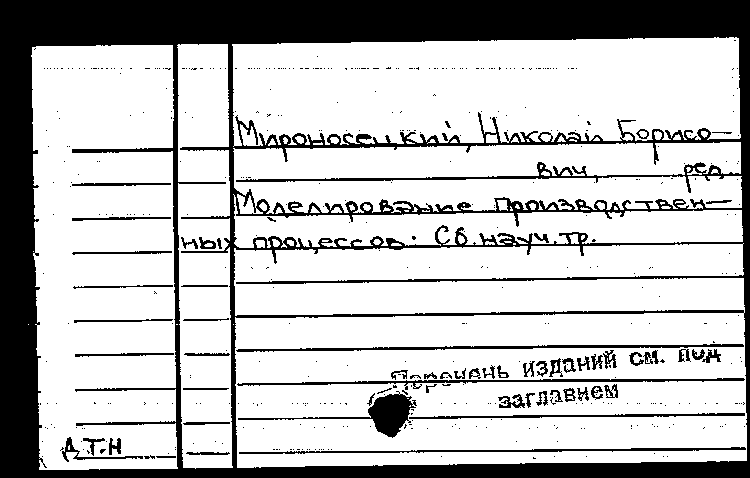 Мироносецкий, Николай Борисо-
вич, ред.
Моделирование производствен-
ных процессов. Сб. науч. тр.
Перечень изданий см. под
заглавием
Д.Т.Н